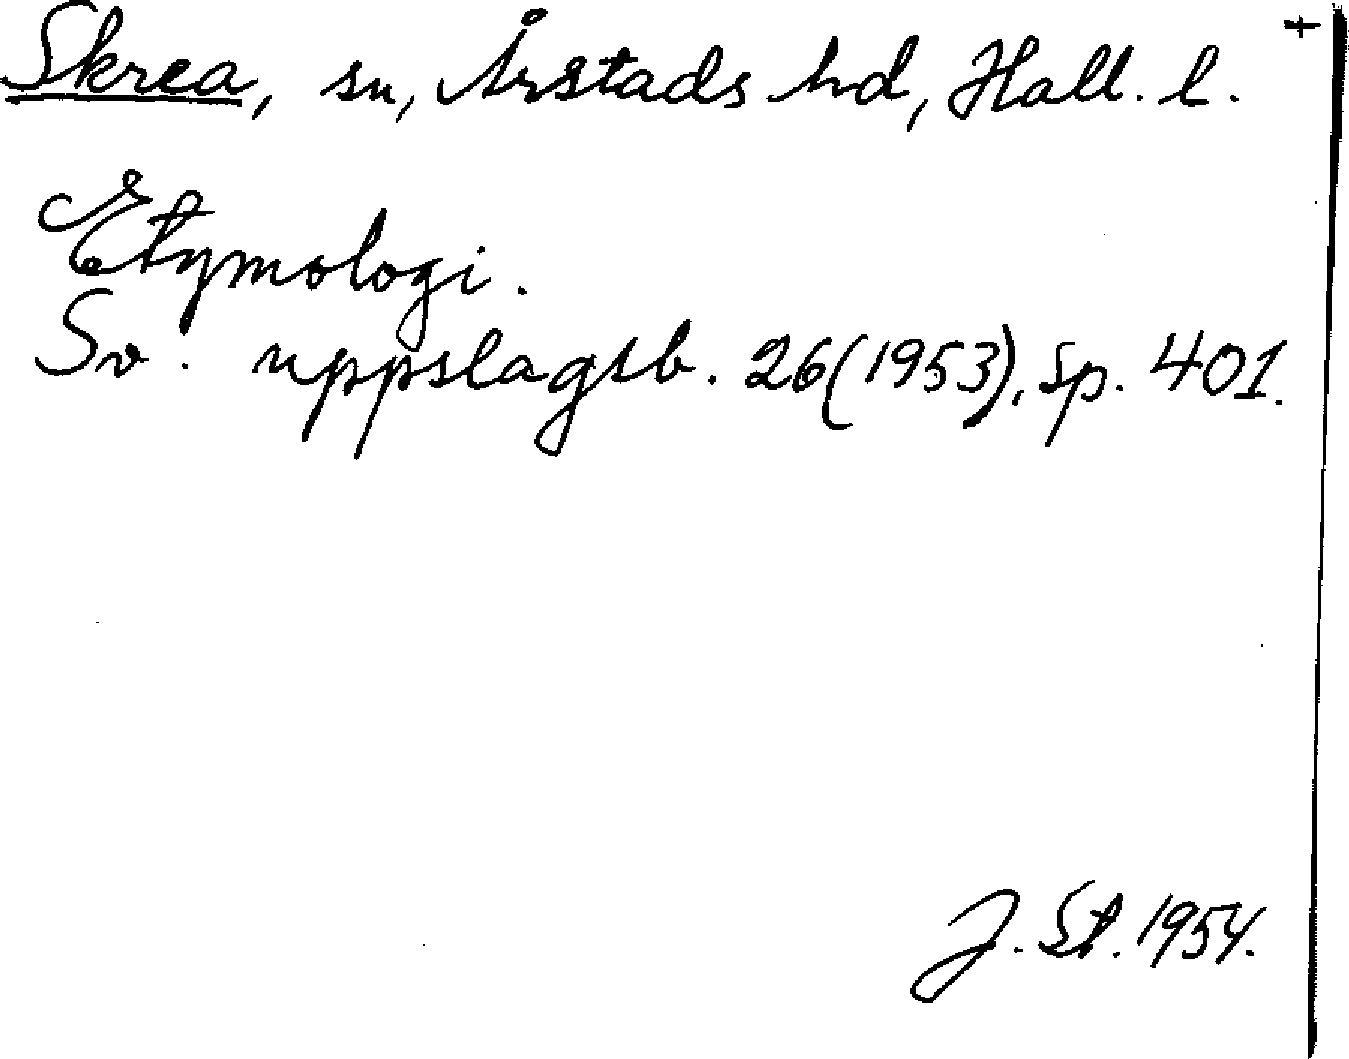 Skrea, sn, Årstads hd, Hall. l. +
Etymologi.
Sv. uppslagsb. 26(1953), sp. 401.
J. St. 1954.